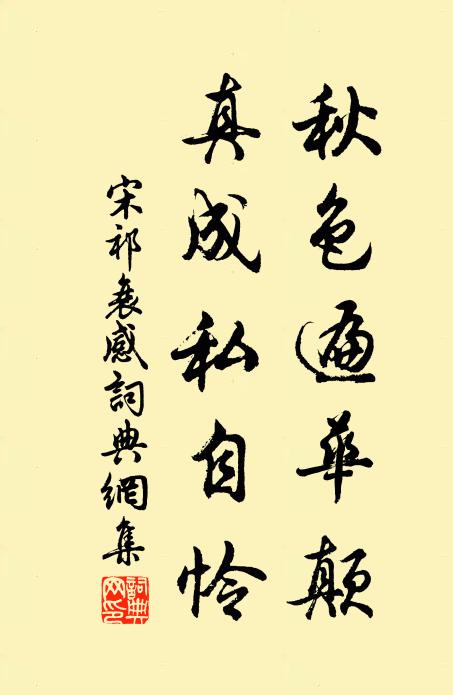 秋色遍華顛
真成私自怜
宋祁衰感詞典網集
詞典网印